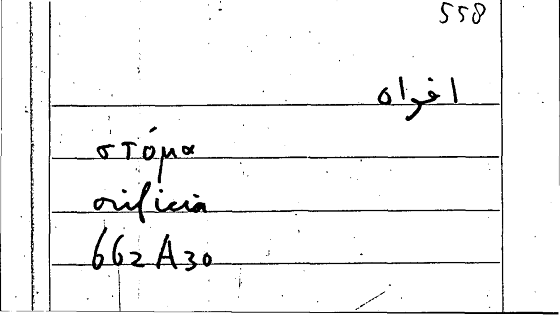 558
افواه
στόμα
orificia
662 A 30